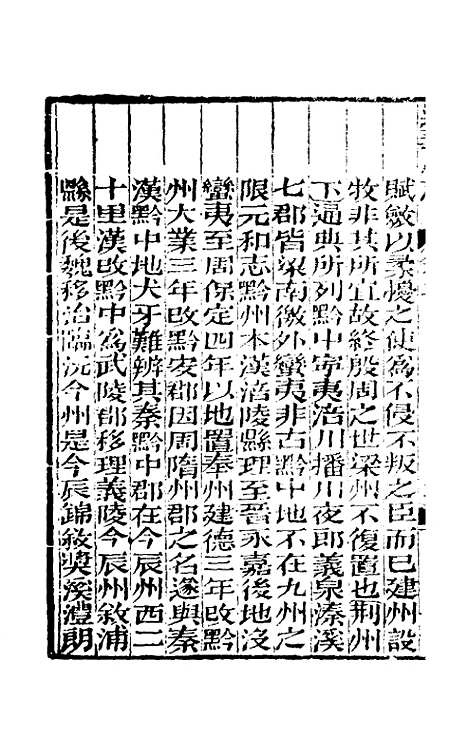 賦斂以柔擾之使為不侵不叛之臣而已建州設
牧非其所宜故終殷周之世梁州不復置也荆州
下通典所列黔中寧夷涪川播川夜郎義泉溱溪
七郡皆梁南徼外蠻夷非古黔中地不在九州之
限元和志黔州本漢涪陵縣理至晉永嘉後地沒
蠻夷至周保定四年以地置奉州建德三年改黔
州大業三年改黔安郡因周隋州郡之名遂與秦
漢黔中地犬牙難辨其秦黔中郡在今辰州西二
十里漢改黔中為武陵郡移理義陵今辰州敘浦
縣是後魏移治臨沅今州是今辰錦敘奬溪澧朗